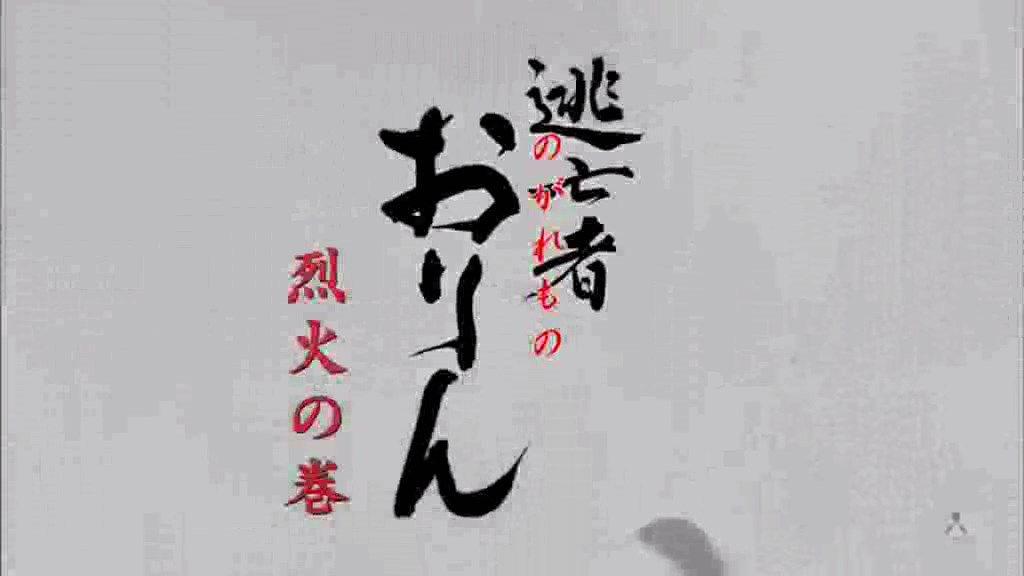 逃亡者
のがれもの
おりん
烈火の巻